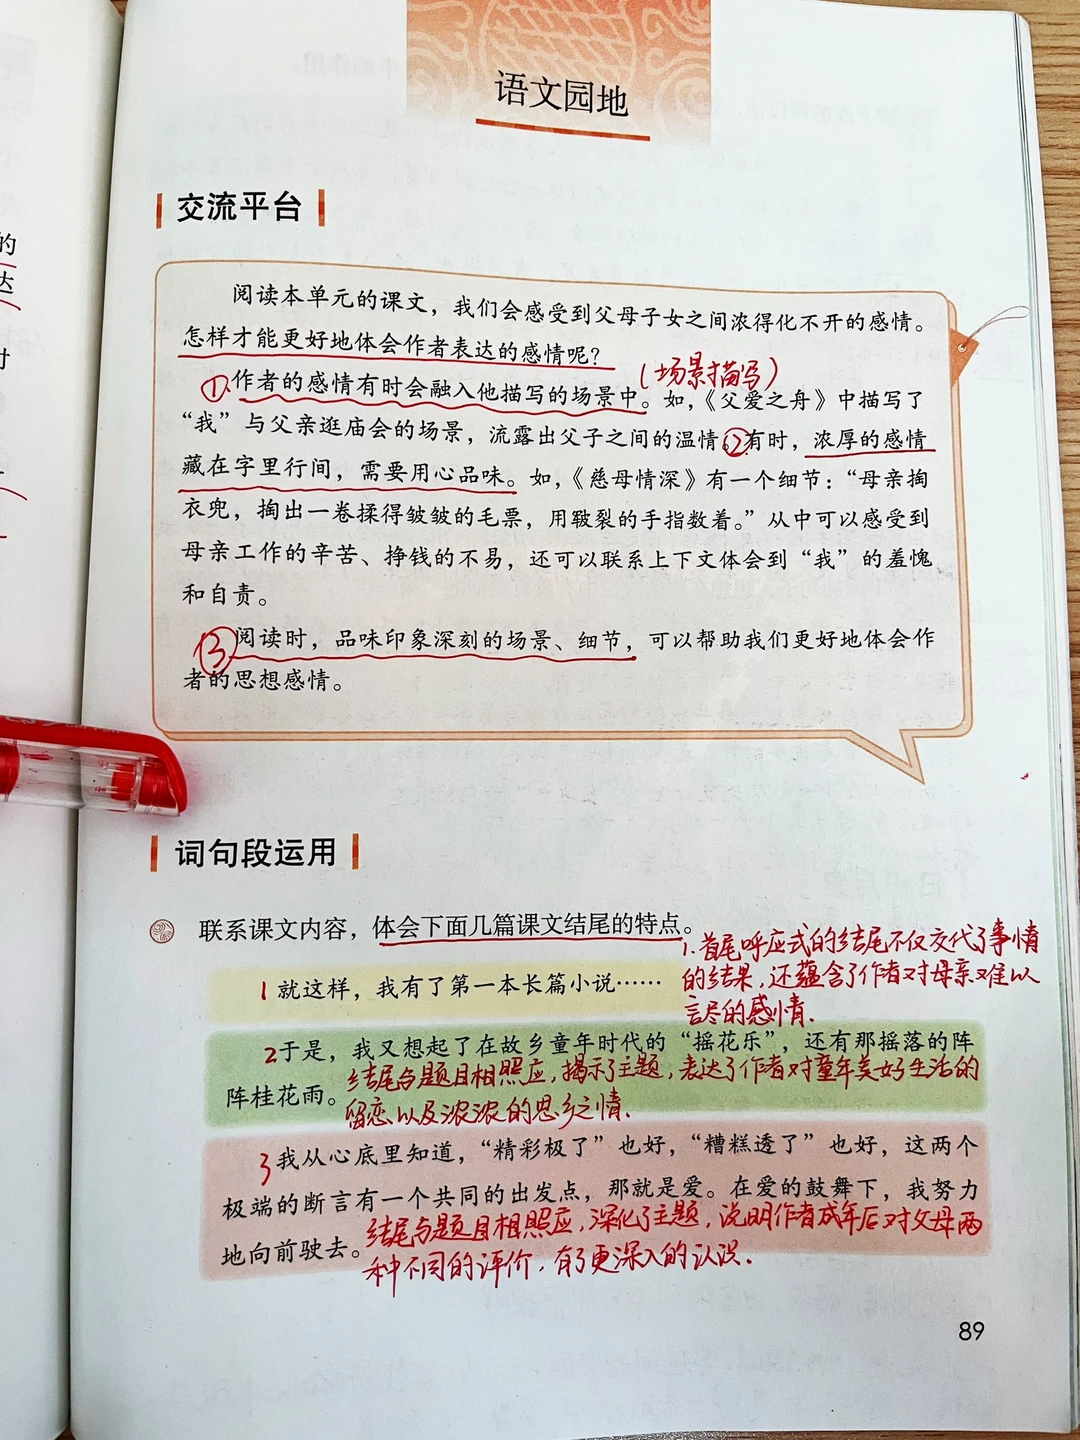 语文园地
交流平台
阅读本单元的课文，我们会感受到父母子女之间浓得化不开的感情。
怎样才能更好地体会作者表达的感情呢？
（场景描写）
①作者的感情有时会融入他描写的场景中。如，《父爱之舟》中描写了
“我”与父亲逛庙会的场景，流露出父子之间的温情。②有时，浓厚的感情
藏在字里行间，需要用心品味。如，《慈母情深》有一个细节：“母亲掏
衣兜，掏出一卷揉得皱皱的毛票，用皲裂的手指数着。”从中可以感受到
母亲工作的辛苦、挣钱的不易，还可以联系上下文体会到“我”的羞愧
和自责。
③阅读时，品味印象深刻的场景、细节，可以帮助我们更好地体会作
者的思想感情。
词句段运用
联系课文内容，体会下面几篇课文结尾的特点。
1.首尾呼应式的结尾不仅交代了事情
的结果，还蕴含了作者对母亲难以
言尽的感情.
1就这样，我有了第一本长篇小说……
2于是，我又想起了在故乡童年时代的“摇花乐”，还有那摇落的阵
阵桂花雨。
结尾与题目相照应，揭示了主题，表达了作者对童年美好生活的
留恋以及浓浓的思乡之情.
3我从心底里知道，“精彩极了”也好，“糟糕透了”也好，这两个
极端的断言有一个共同的出发点，那就是爱。在爱的鼓舞下，我努力
地向前驶去。
结尾与题目相照应，深化了主题，说明作者成年后对父母两
种不同的评价，有了更深入的认识.
89
的
达